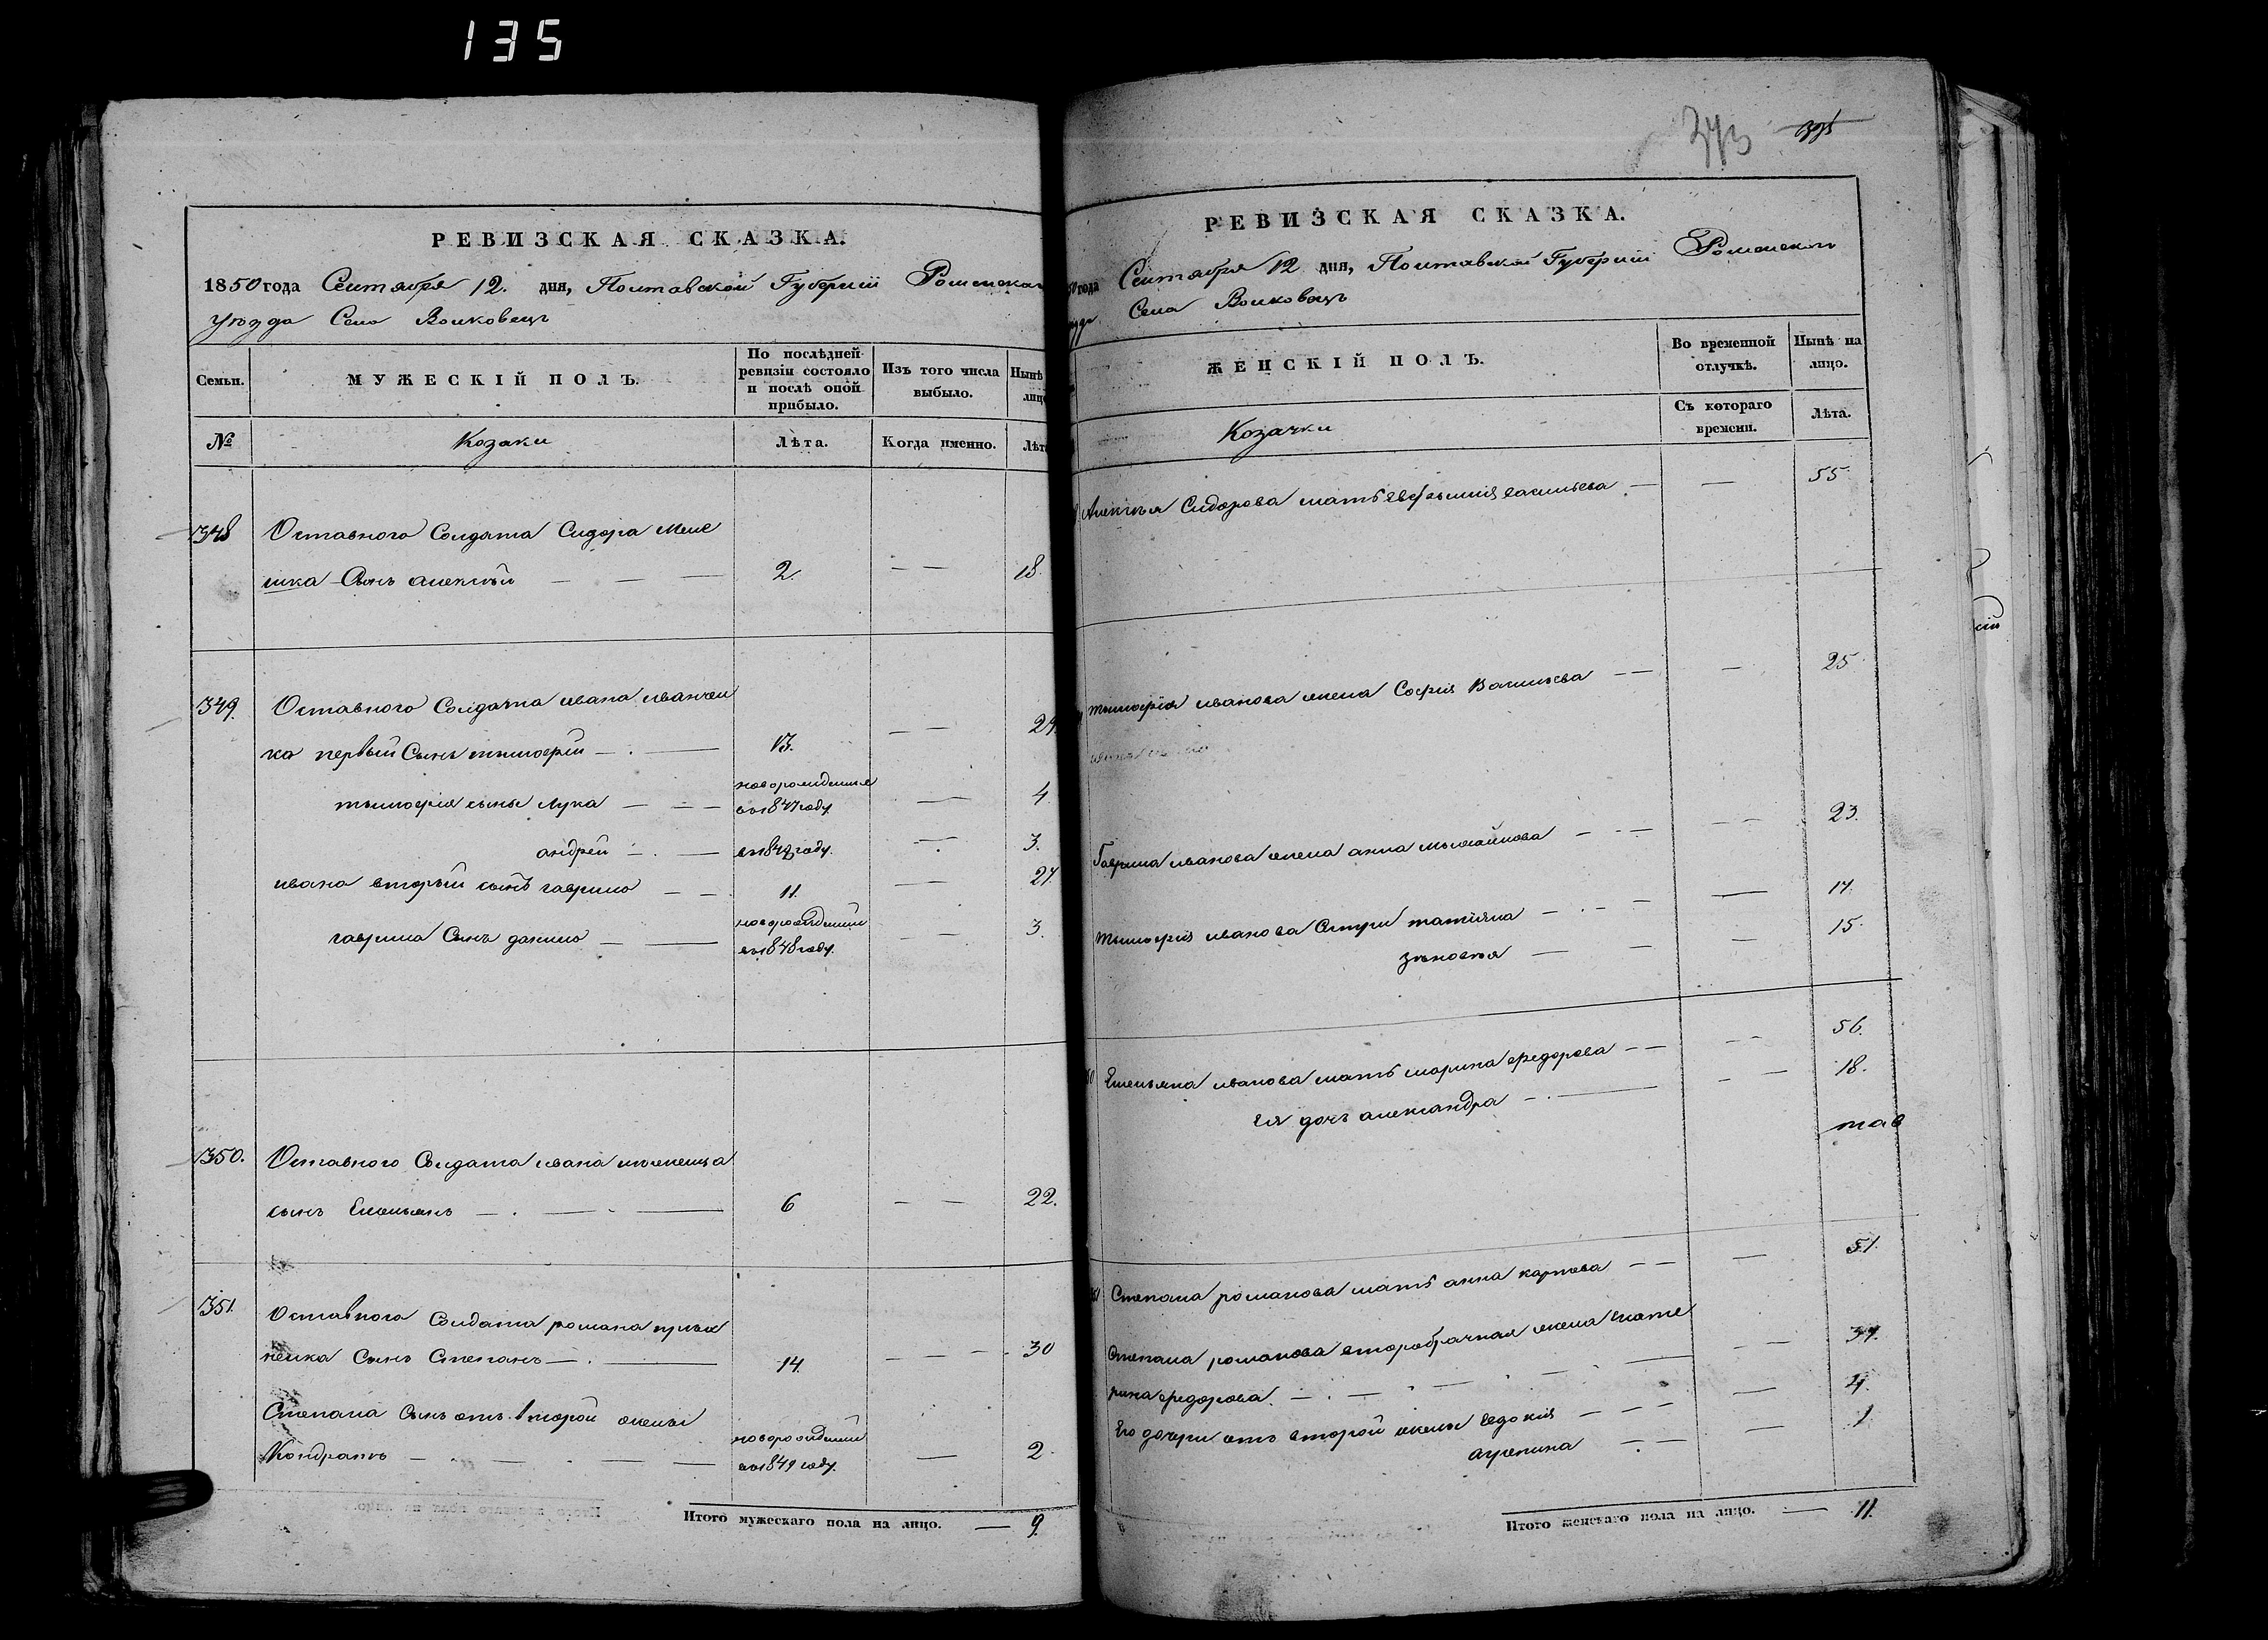 135
373
РЕВИЗСКАЯ СКАЗКА.
1850 года Сентября 12. дня, Полтавской Губернии Роменскаго
уѣзда Села Волковецъ
Семьи.
МУЖЕСКІЙ ПОЛЪ.
По послѣдней ревизіи состояло и послѣ оной прибыло.
Изъ того числа выбыло.
Нынѣ
лицо
№
Козаки
Лѣта.
Когда именно.
Лѣта
348 Отставного Солдата Сидора
Сынъ алексѣй — — — 2. — — 18.
349. Отставного Солдата ивана иванчен
ка первый Сынъ тимофѣй — 13. — — 29.
новорожденные
тимофѣя сыны Лука — — — въ 1847 году. — 4
андрей — — въ 1848 году. — 3.
ивана вторый сынъ гаврило — — 11. — 27.
новорожденный
гаврила Сынъ данило — — въ 1848 году. — — 3.
350. Отставного Солдата ивана
сынъ Емельянъ — — — 6 — — 22.
351. Отставного Солдата романа
Сынъ Степанъ — — 14. — — — 30
Степана Сынъ отъ второй жены новорожденный
Кондратъ — — — — — въ 1849 году. — 2
Итого мужескаго пола на лицо. — 9.
РЕВИЗСКАЯ СКАЗКА.
50 года Сентября 12 дня, Полтавской Губерніи Роменскаго
Села Волковецъ
ЖЕНСКІЙ ПОЛЪ.
Во временной отлучкѣ.
Нынѣ на лицо.
Козачки
Съ котораго времени.
Лѣта.
Алексѣя Сидорова мать евфимія васильева — — 55
тимофѣя иванова жена Софія Васильева — — — 25
Гаврила иванова жена анна михайлова — — — — 23.
тимофѣя иванова Сестри татіяна — — — — 17.
зѣновія — — — 15.
Емельяна иванова мать марина федорова — — — — 56.
Ея дочь александра — — — — 18.
Степана романова мать анна карпова — — — 51.
Степана романова второбрачная жена Екате
рина федорова. — — — — — 37.
Его дочери отъ второй жены Евдокія — — — — 4.
агрепина — — — 1
Итого женскаго пола на лицо. — 11.